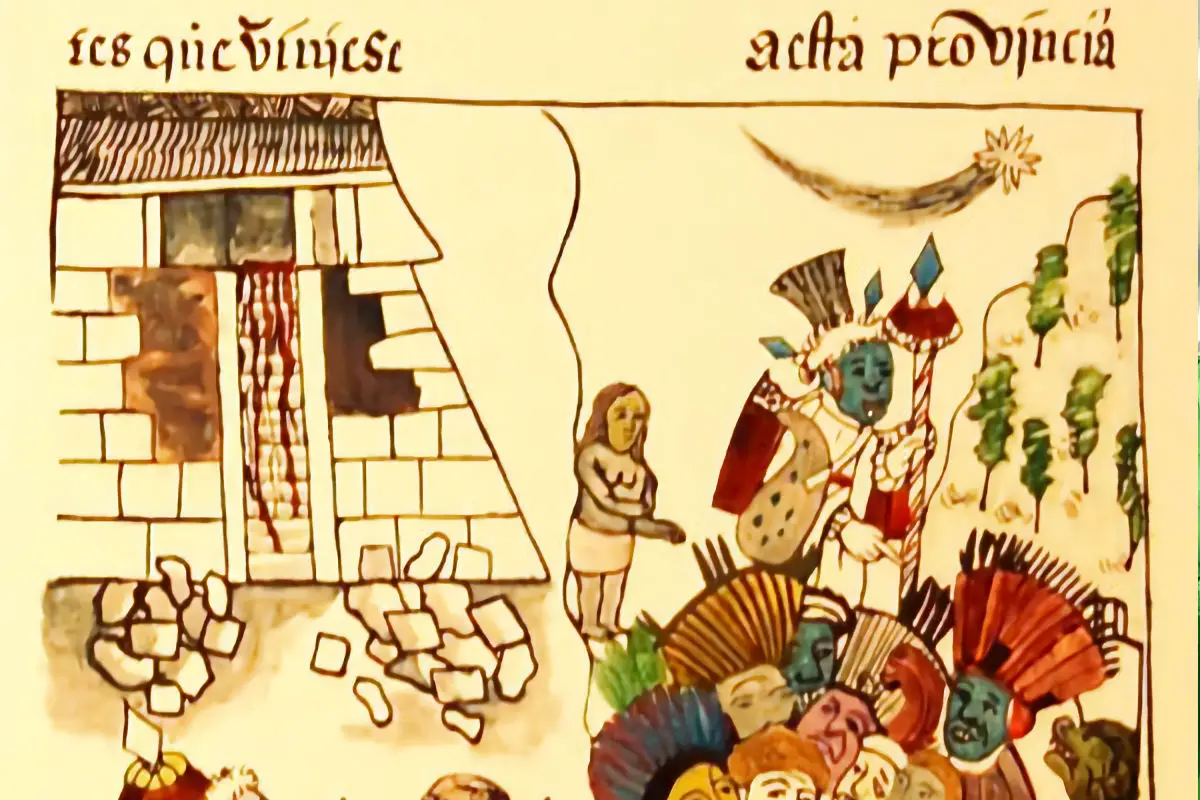 res que viniese a esta provincia